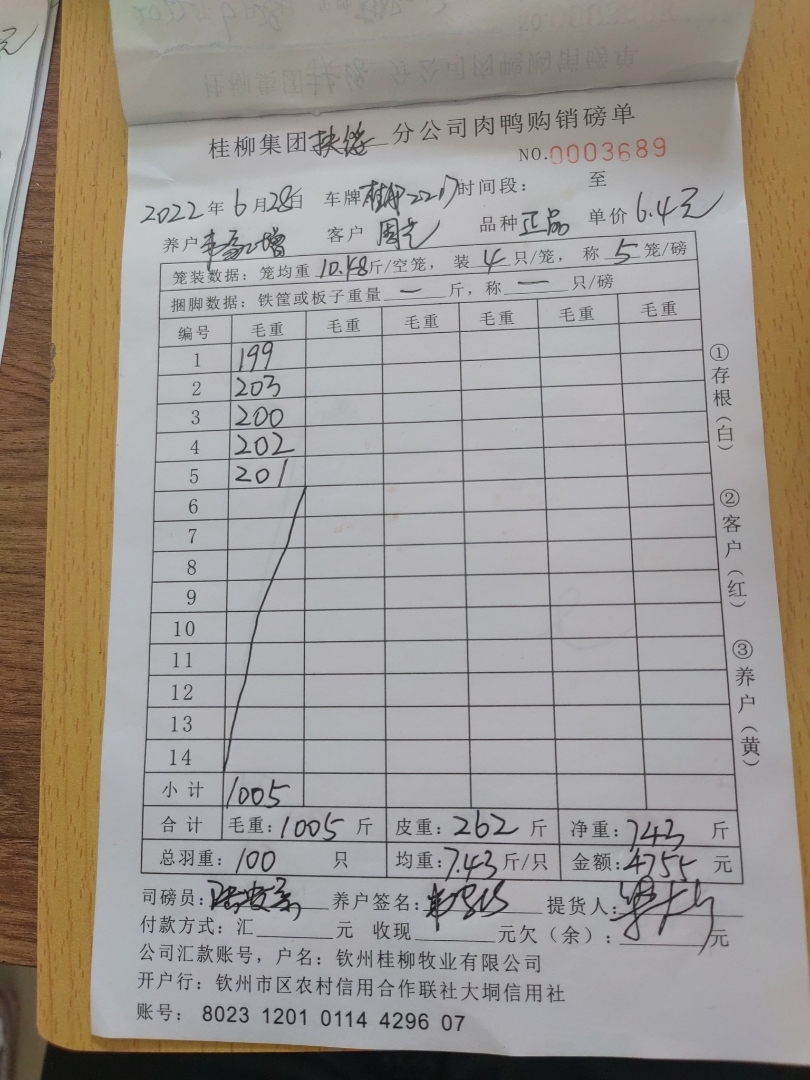 桂柳集团扶绥分公司肉鸭购销磅单
NO.0003689
2022年6月28日 车牌桂柳2217时间段： 至
养户 客户 周光 品种正品 单价6.4元
笼装数据：笼均重10.48斤/空笼，装4只/笼，称5笼/磅
捆脚数据：铁筐或板子重量一斤，称一只/磅
编号 毛重 毛重 毛重 毛重 毛重 毛重
1 199
2 203
3 200
4 202
5 201
6
7
8
9
10
11
12
13
14
小计 1005
合计 毛重：1005斤 皮重：262斤 净重：743斤
总羽重：100只 均重：7.43斤/只 金额：4755元
司磅员： 养户签名： 提货人：
付款方式：汇 元 收现 元欠（余）： 元
公司汇款账号，户名：钦州桂柳牧业有限公司
开户行：钦州市区农村信用合作联社大垌信用社
账号：8023 1201 0114 4296 07
①存根（白）
②客户（红）
③养户（黄）